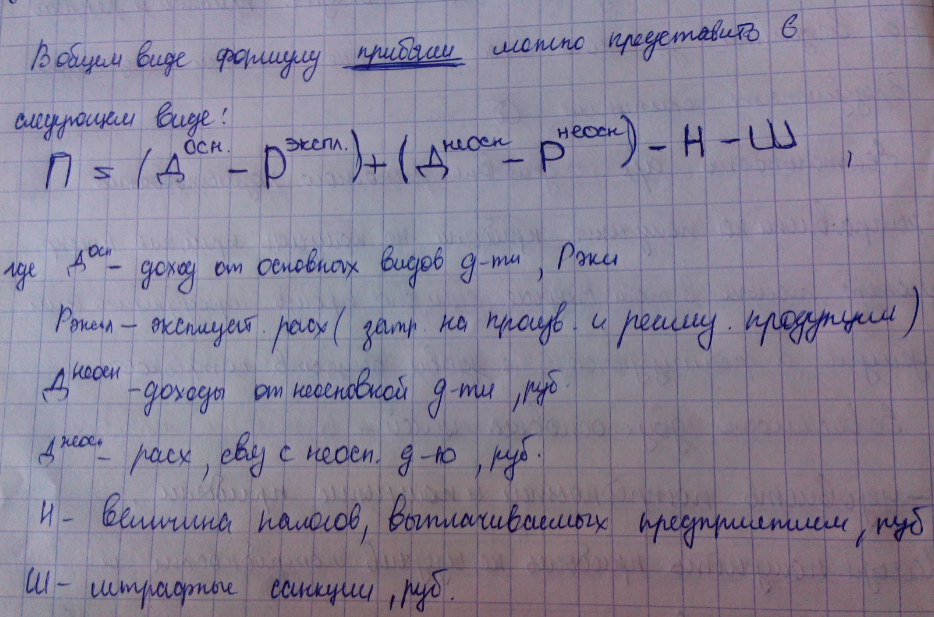 В общем виде формулу прибыли можно представить в
следующем виде:
П = (Д^осн. − Р^экспл.) + (Д^неосн − Р^неосн) − Н − Ш ,
где Д^осн − доход от основных видов д-ти, Рэкс
Рэкспл − эксплуат. расх (затр. на произв. и реализ. продукции)
Д^неосн − доходы от неосновной д-ти, руб.
Д^неосн − расх, связ с неосн. д-ю, руб.
Н − величина налогов, выплачиваемых предприятием, руб
Ш − штрафные санкции, руб.